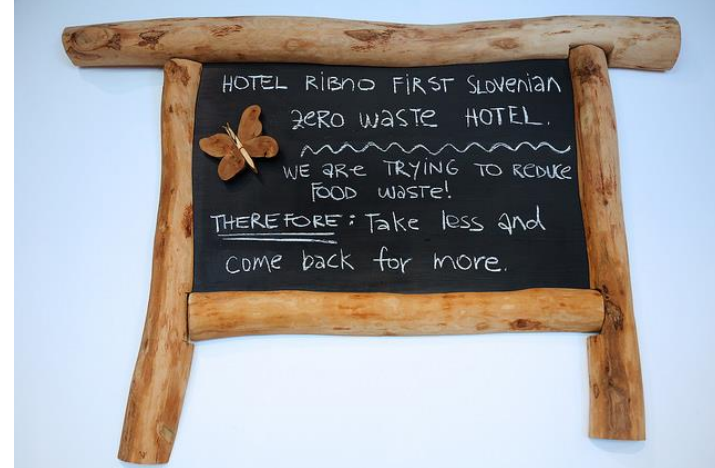 HOTEL RiBnO FiRST SLOVEnian
ZERO WaSTe HOTEL.
WE aRe TRYING TO REDUCE
FOOD WaSTe!
THEREFORE: Take less and
come back for more.